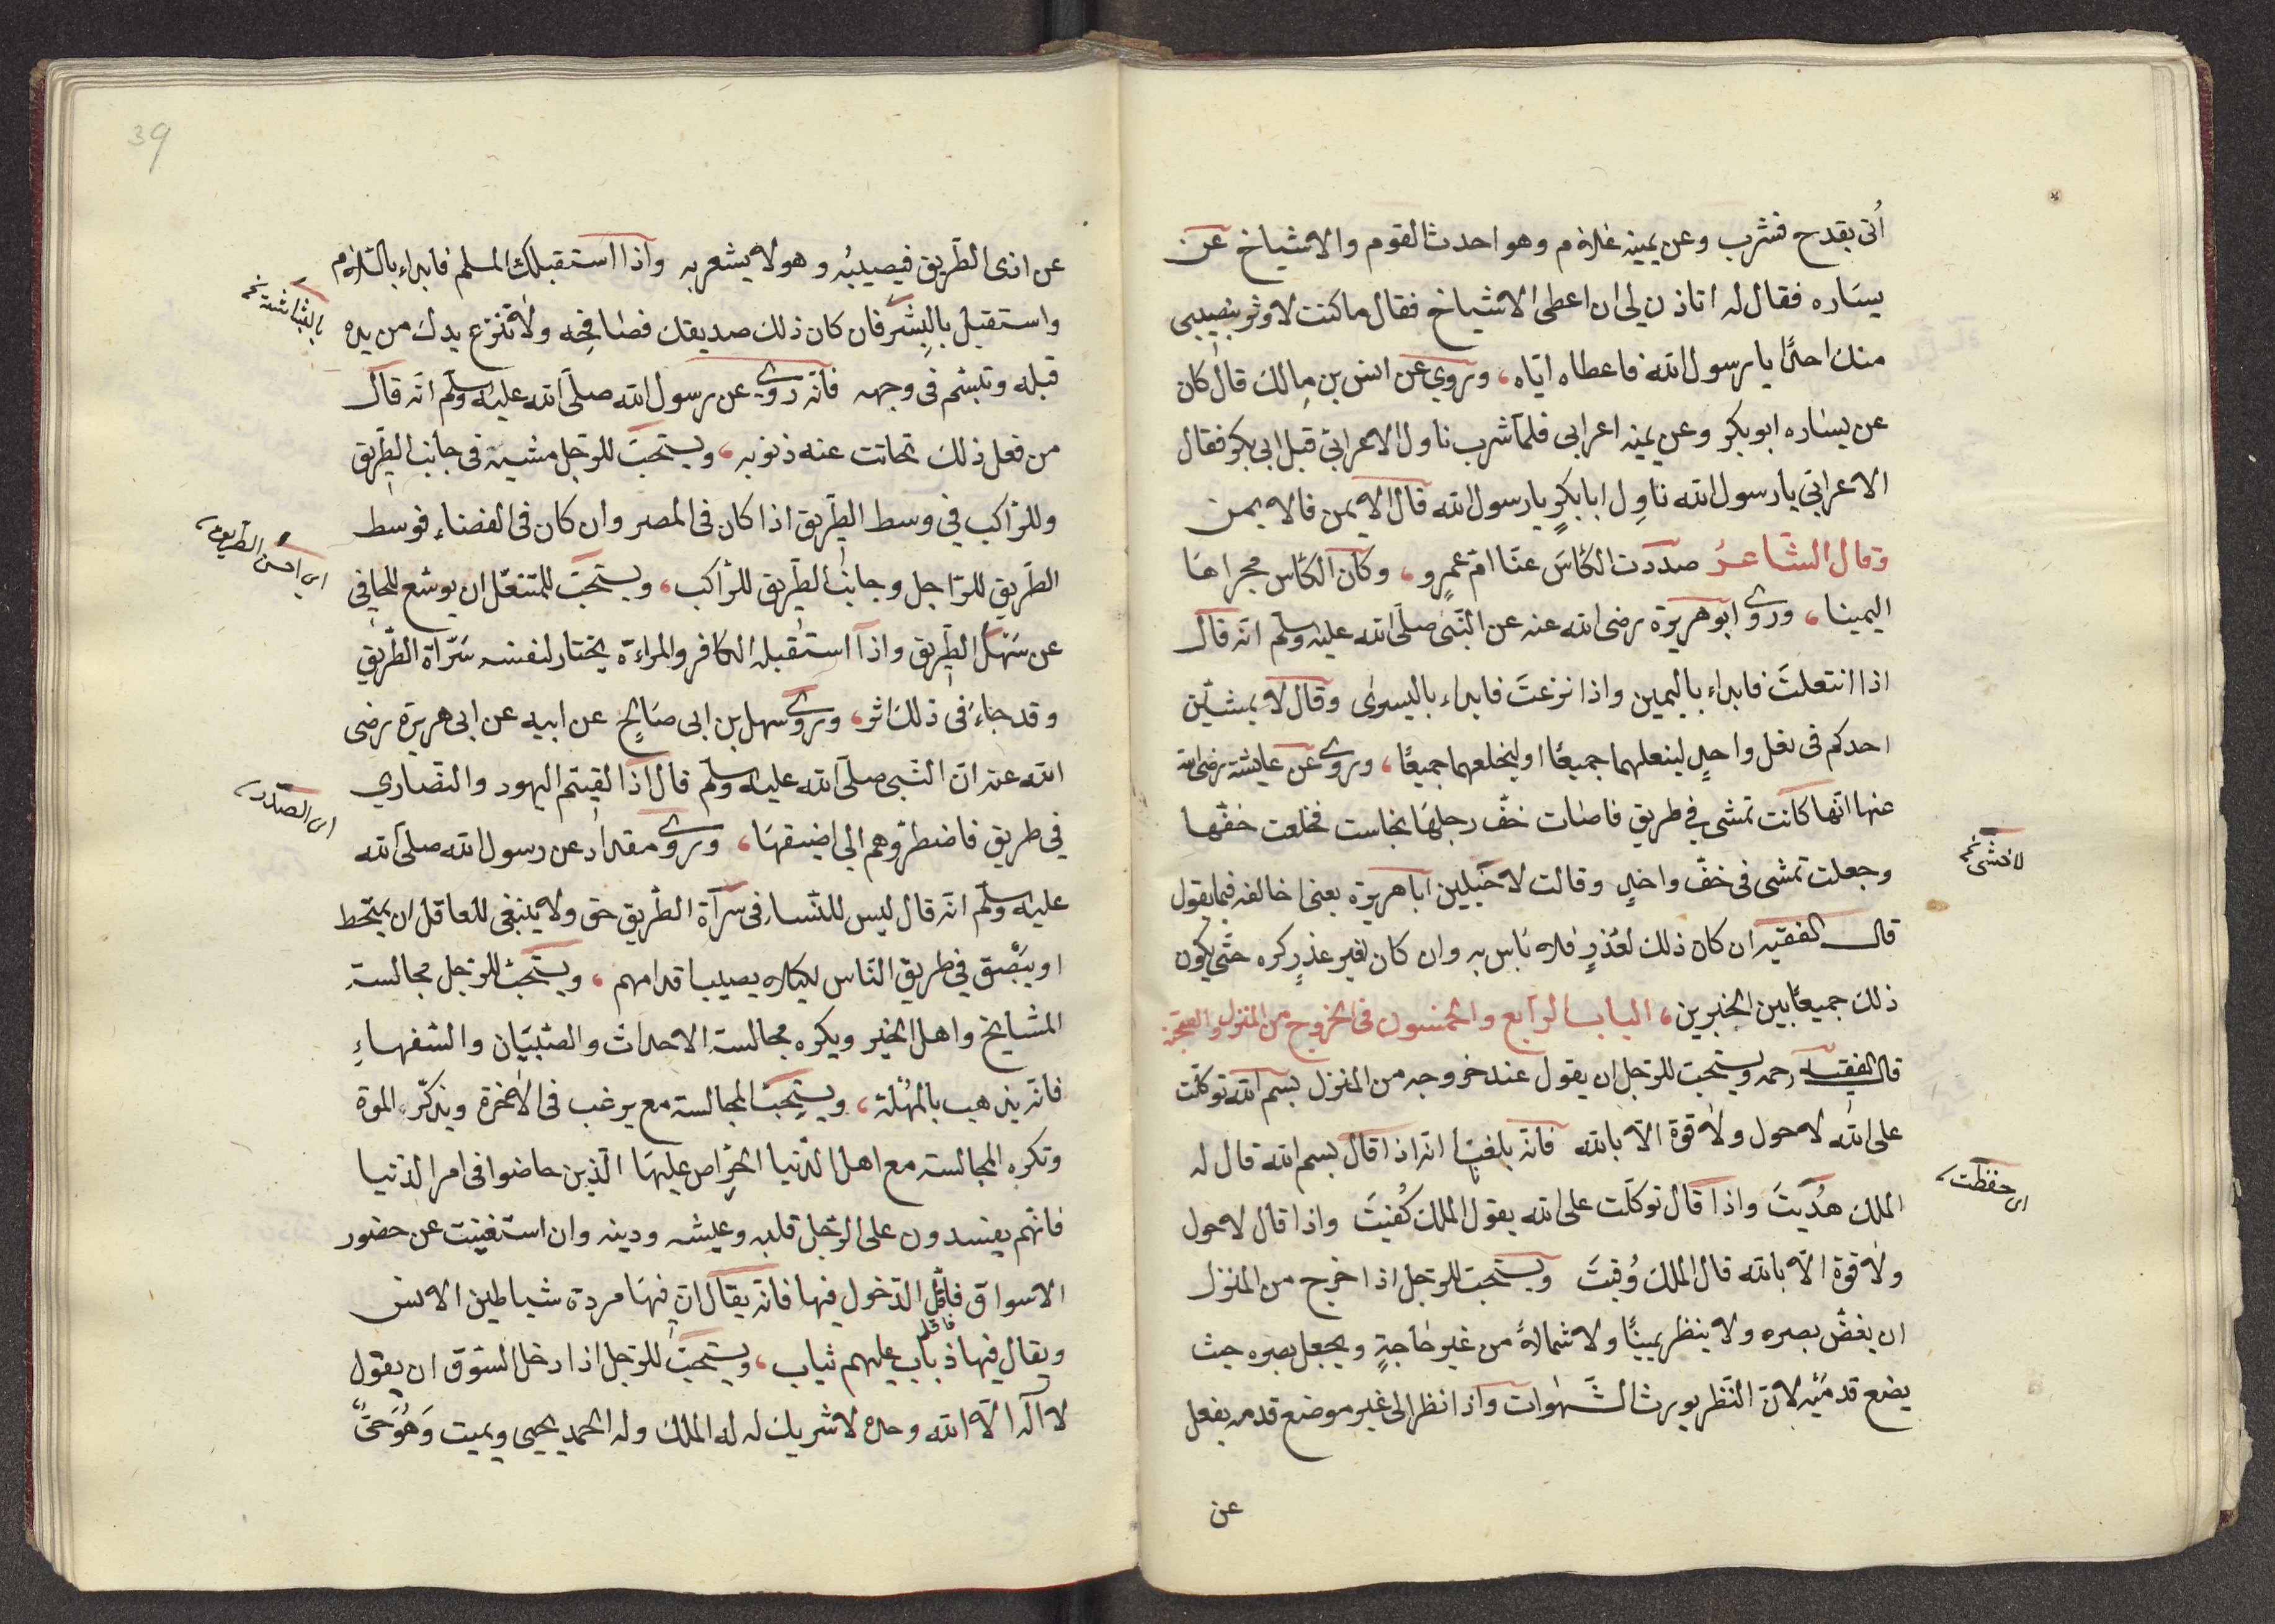 أتى بقدح فشرب وعن يمينه غلام وهو احدث القوم والاشياخ عن
يساره فقال له اتاذن لى ان اعطى الاشياخ فقال ما كنت لاوثر بنصيبى
منك احدًا يا رسول الله فاعطاه اياه، وروي عن انس بن مالك قال كان
عن يساره ابو بكر وعن يمينه اعرابى فلما شرب ناول الاعرابى قبل ابى بكر فقال
الاعرابي يا رسول الله ناوِل ابا بكرٍ يا رسول الله قال الايمن فالايمن
وقال الشاعرُ صددت الكأسَ عنّا امّ عمرو، وكان الكأس مجراها
اليمينا، وروى ابو هريرة رضى الله عنه عن النبى صلى الله عليه وسلم انه قال
اذا انتعلتَ فابداء باليمين واذا نزعتَ فابداء باليسرى وقال لا يمشينّ
احدكم فى نعل واحدٍ لينعلهما جميعًا او ليخلعهما جميعًا، وروى عن عايشة رضى الله
عنها انها كانت تمشى في طريق فاصاب خفّ رجلها نجاست فخلعت خفّها
لاخشى نخ
وجعلت تمشى فى خفّ واحدٍ وقالت لا ابا هريرة يعنى اخالفه فيما يقول
قال الفقيه ان كان ذلك لعُذرٍ فلا بأس به وان كان لغير عذرٍ كره حتّى يكون
ذلك جميعًا بين الخبرين، الباب الرابع والخمسون فى الخروج من المنزل
قال الفقيه رحمه ويستحب للرجل ان يقول عند خروجه من المنزل بسم الله توكّلت
على الله لا حول ولا قوة الا بالله فانه بلغنا انه اذا قال بسم الله قال له
الملك هُديتَ واذا قال توكّلت على الله يقول الملك كُفيتَ واذا قال لا حول
اى حفظت
ولا قوة الا بالله قال الملك وُقيتَ ويستحب للرجل اذا خرج من المنزل
ان يغضّ بصره ولا ينظر يمينًا ولا شمالاً من غير حاجةٍ ويجعل بصره حيث
يضع قدميه لانّ النّظر يورث الشّهوات واذا نظر الى غير موضع قدمه يغفل
عن
39
عن اذى الطّريق فيصيبُه وهو لا يشعر به واذا استقبلك المسلم فابداء بالسّلام
واستقبل بالبِشر فان كان ذلك صديقك فصافحه ولا تنزع يدك من يده
بالبشاشة نخ
قبله وتبسّم فى وجهه فانّه روى عن رسول الله صلى الله عليه وسلم انّه قال
من فعل ذلك تحاتت عنه ذنوبه، ويستحبّ للرجل مشيه فى جانب الطّريق
وللرّاكب في وسط الطّريق اذا كان فى المصر وان كان فى الفضاء فوسط
الطّريق للرّاجل وجانب الطّريق للرّاكب، ويستحبّ للمتنعّل ان يوسّع للحافى
اى احسن الطّريق
عن سَهْل الطّريق واذا استقبله الكافر والمراءة يختار لنفسه سَرّاة الطّريق
وقد جاءَ فى ذلك اثر، وروى سهل بن ابى صَالحٍ عن ابيه عن ابى هريرة رضى
الله عنه انّ النّبى صلى الله عليه وسلم قال اذا لقيتم اليهود والنصاري
في طريق فاضطرّوهم الي اضيقهَا، وروى مقداد عن رسول الله صلى الله
اى الصدر
عليه وسلم انّه قال ليس للنّساء فى سرآة الطّريق حق ولا ينبغى للعاقل ان يمتخط
او يبْصق في طريق النّاس لكيلا يصيب اقدامهم، ويستحبّ للرّجل مجالسة
المشايخ واهل الخير ويكره مجالسة الاحداث والصّبيَان والسّفهاءِ
فانّه يذهب بالمُهلة، ويستحبّ المجالسة مع يرغب فى الاخرة ويذكّره الموة
وتكره المجالسة مع اهل الدّنيا الحُرّاص عليهَا الّذين خاضوا فى امر الدّنيا
فانّهم يفسدون على الرّجل قلبه وعيشه ودينه وان استغنيت عن حضور
الاسواق فاقلّ الدّخول فيها فانّه يقال انّ فيهَا مردة شياطين الانس
فاقلل
ويقال فيها ذباب عليهم ثياب، ويستحبّ للرّجل اذا دخل السّوق ان يقول
لا اله الا الله وحده لا شريك له له الملك وله الحمد يحيى ويميت وَهُوَ حَىٌّ